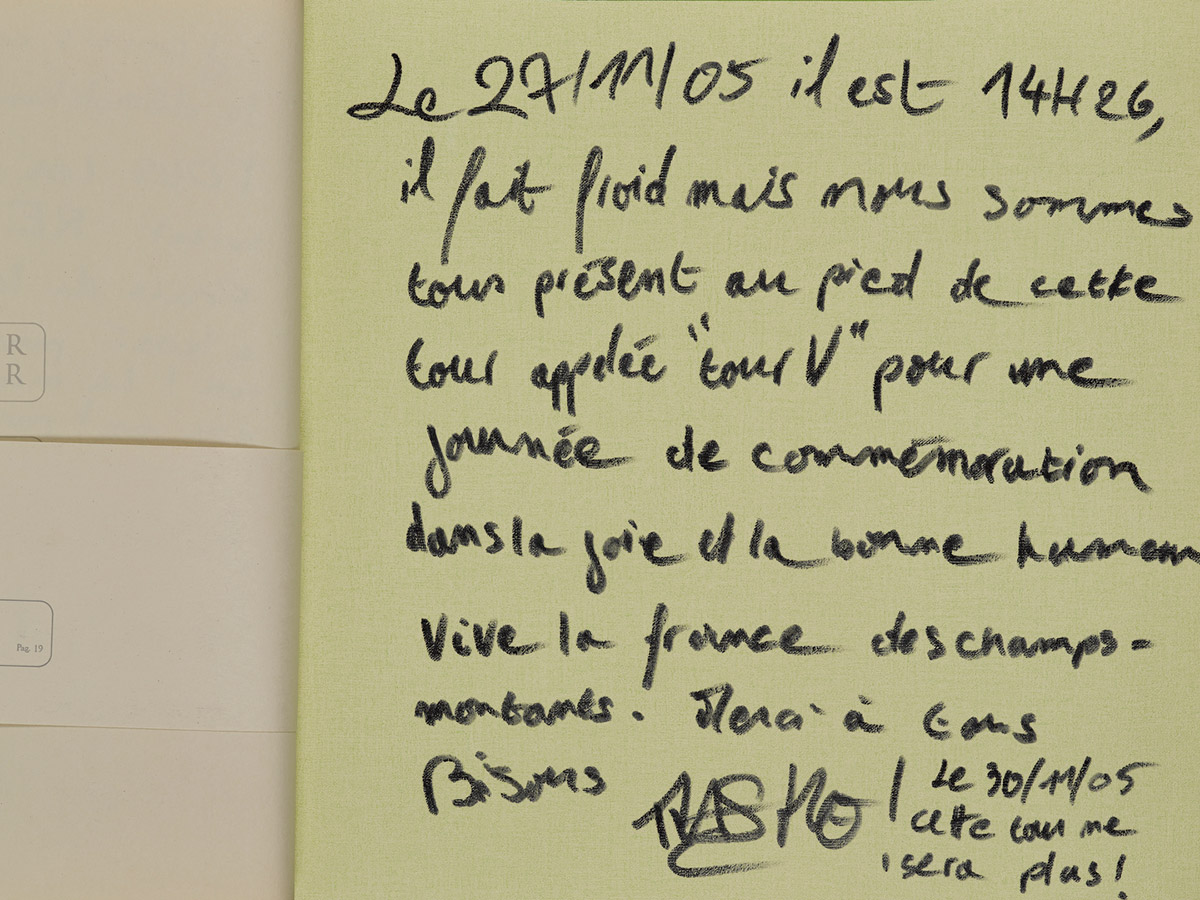 R
R
Pag. 19
Le 27/11/05 il est 14H26,
il fait froid mais nous sommes
tous présent au pied de cette
tour appelée "tour V" pour une
journée de commémoration
dans la joie et la bonne humeur
Vive la france des champs-
montants. Merci à tous
Bisous
Le 30/11/05
cette tour ne
sera plus!